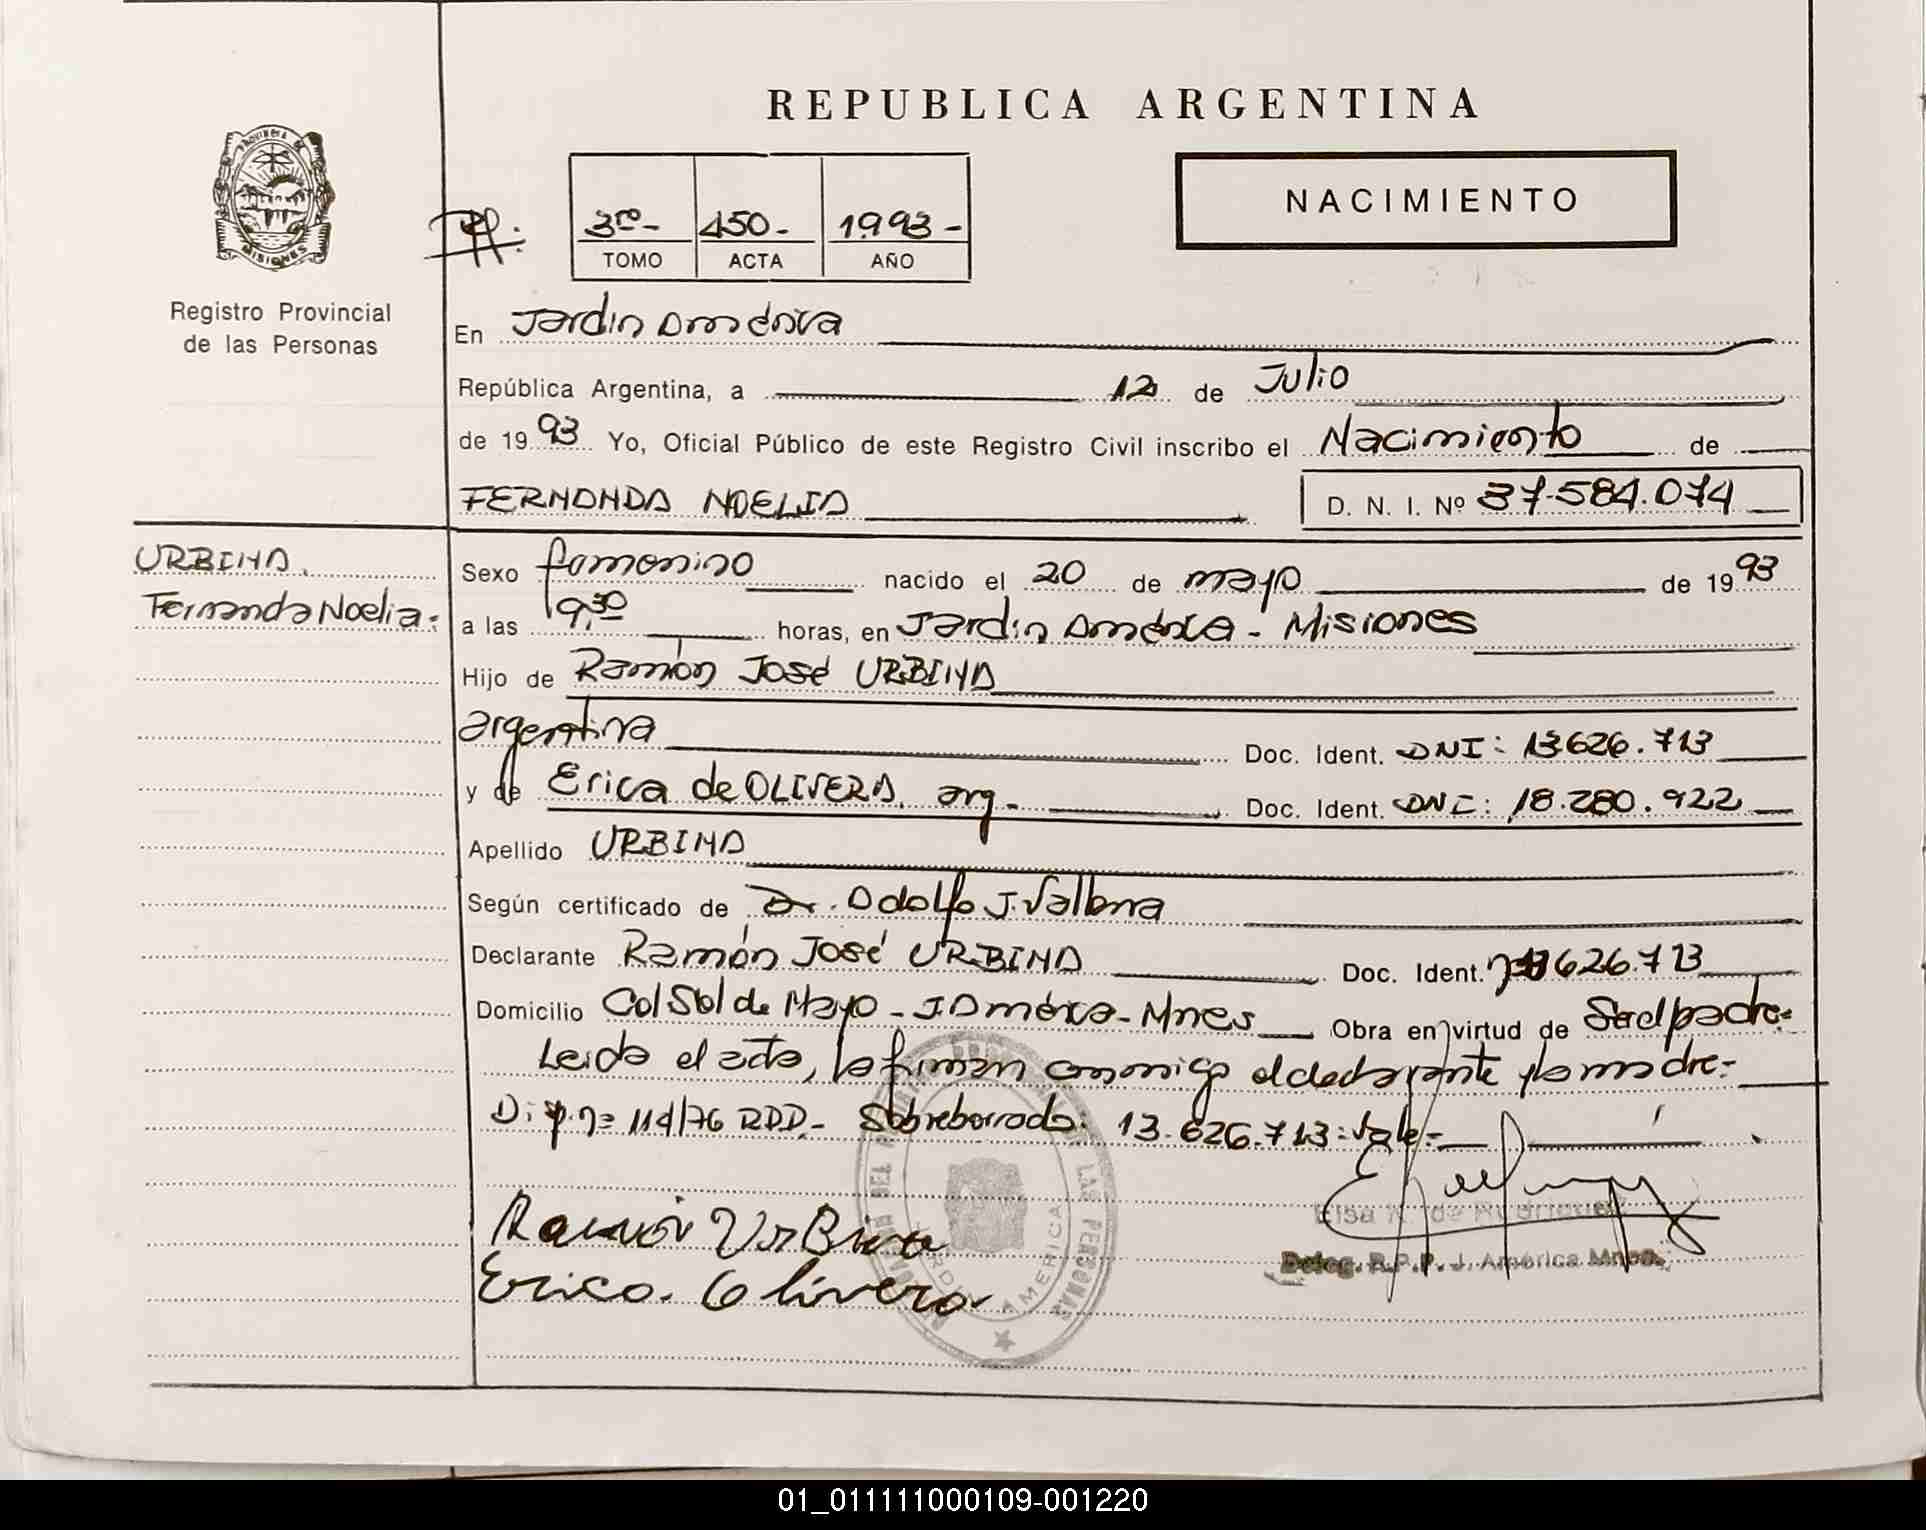 REPUBLICA ARGENTINA
PROVINCIA DE
MISIONES
Registro Provincial
de las Personas
3ro- 450- 1993-
TOMO ACTA AÑO
NACIMIENTO
En Jardin América
República Argentina, a 12 de Julio
de 1993 Yo, Oficial Público de este Registro Civil inscribo el Nacimiento de
FERNANDA NOELIA D. N. I. Nº 37.584.074
URBINA.
Fernanda Noelia.
Sexo femenino nacido el 20 de mayo de 1993
a las 9,30 horas, en Jardin América - Misiones
Hijo de Ramón José URBINA
argentina Doc. Ident. DNI: 13.626.713
y de Erica de OLIVERA, arg. Doc. Ident. DNI: 18.280.922
Apellido URBINA
Según certificado de Dr. Adolfo J.
Declarante Ramón José URBINA Doc. Ident. 13.626.713
Domicilio Col Sol de Mayo - J. América - Mnes Obra en virtud de Ser el padre
Leida el acta, la firman conmigo el declarante y la madre.
Disp. nº 114/76 Sobreborrado: 13.626.713: Vale.
Ramón Urbina
Erica. Olivera
Elsa de Rodriguez
Deleg. R.P.P. J. América Mnes.
REGISTRO PROVINCIAL DE LAS PERSONAS
JARDIN AMERICA
01_011111000109-001220